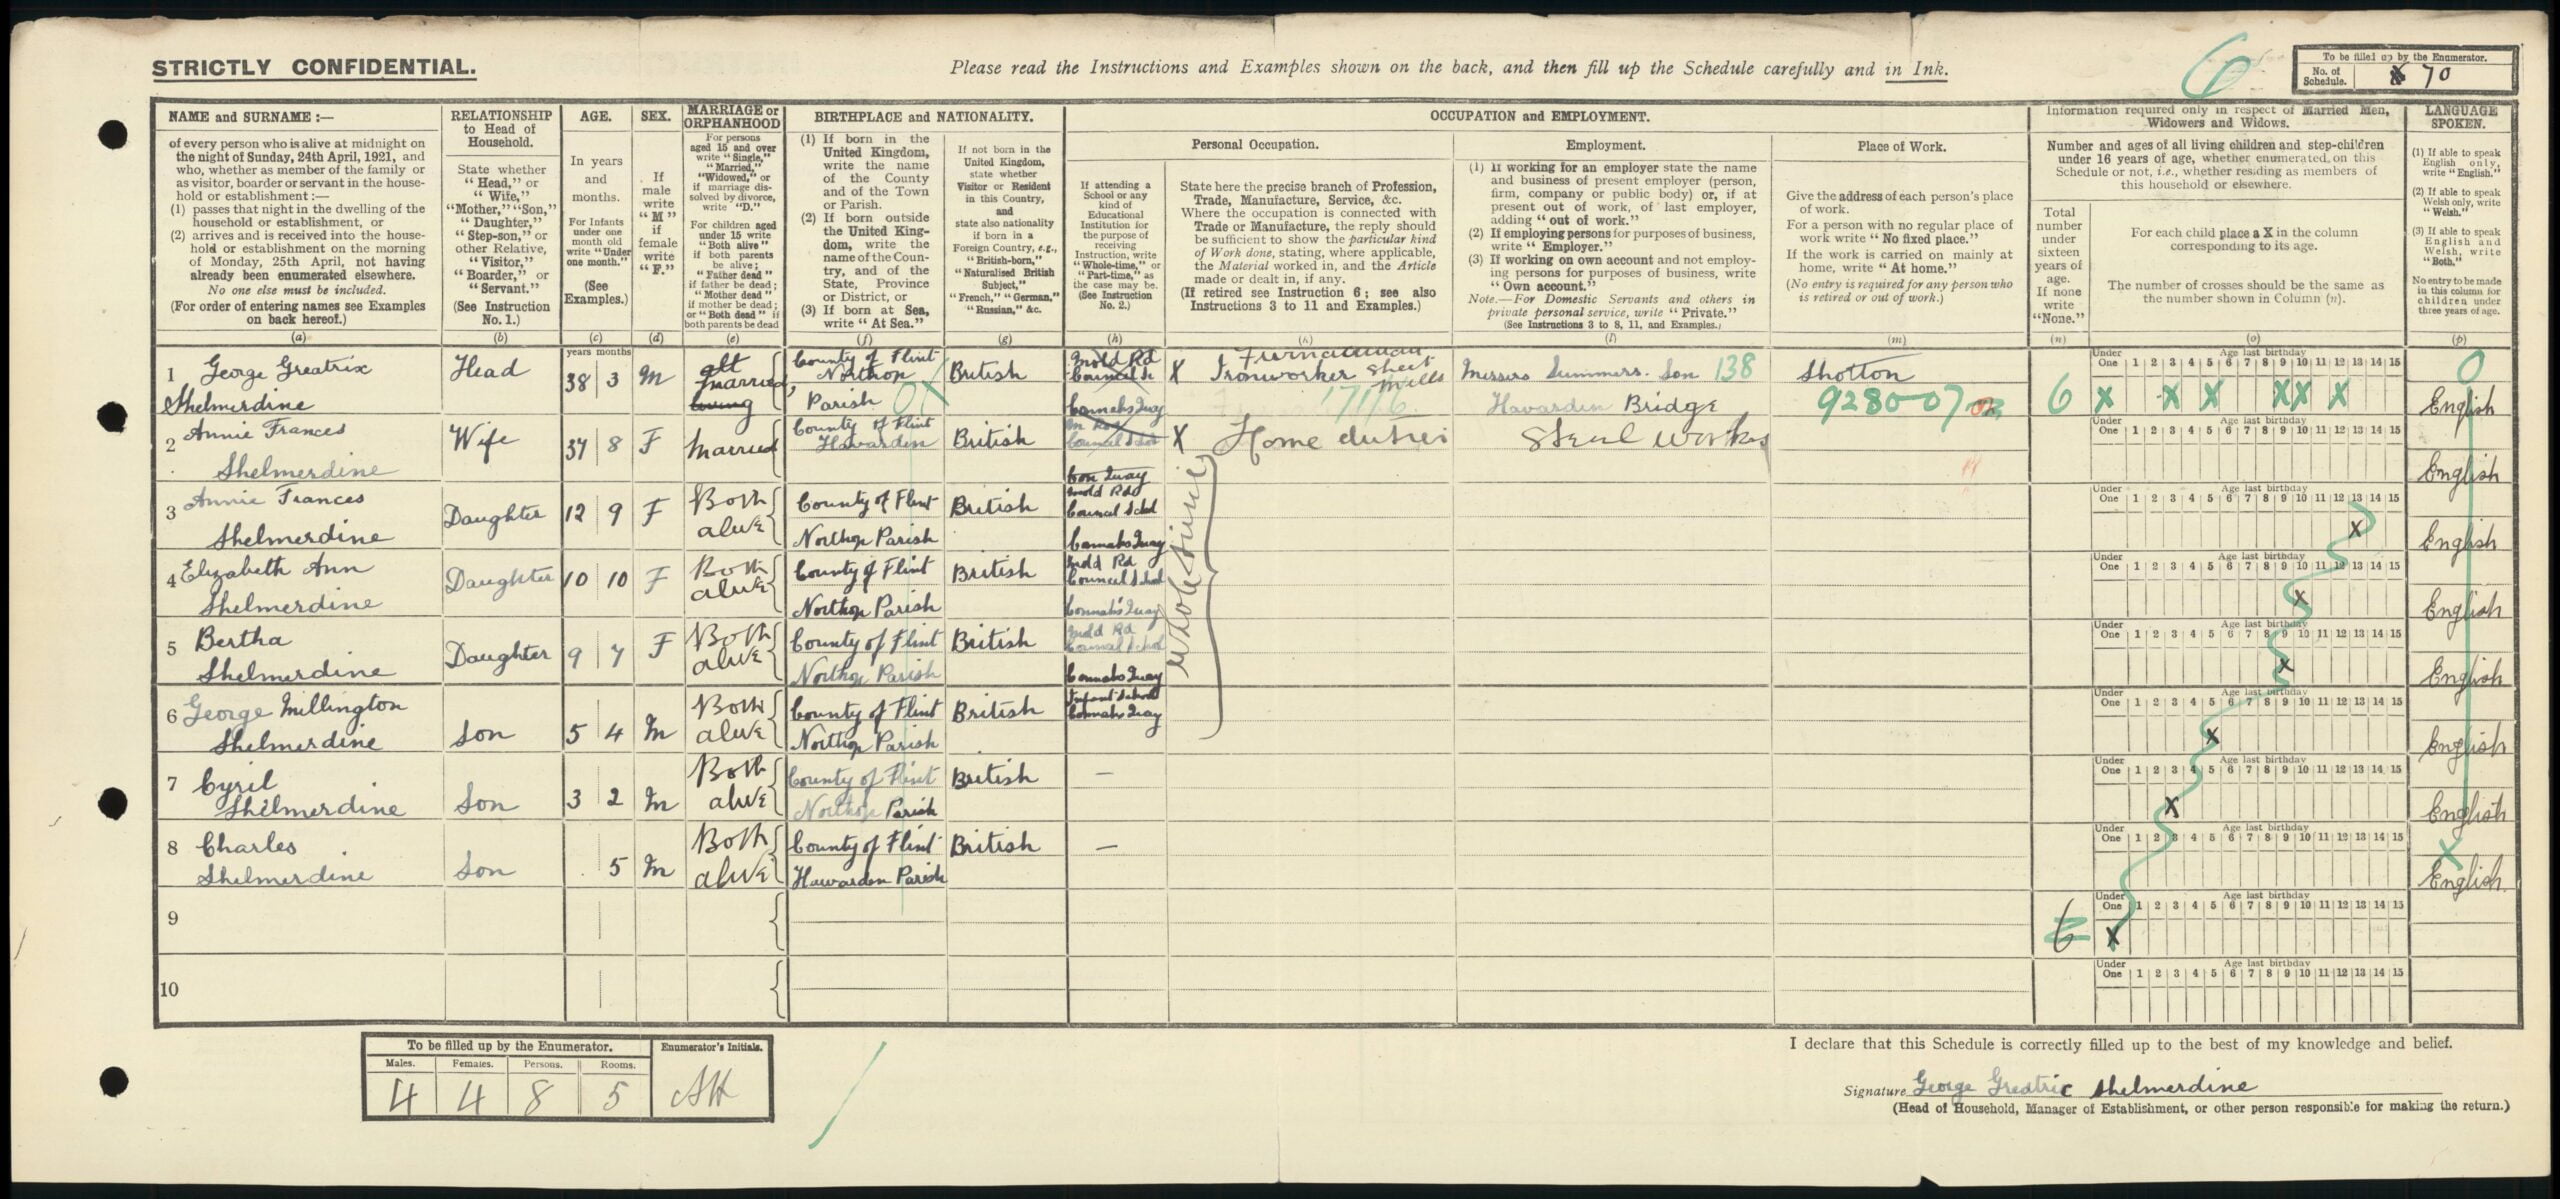 STRICTLY CONFIDENTIAL.
Please read the Instructions and Examples shown on the back, and then fill up the Schedule carefully and in Ink.
6
To be filled up by the Enumerator.
No. of Schedule. 70
NAME and SURNAME :—
of every person who is alive at midnight on
the night of Sunday, 24th April, 1921, and
who, whether as member of the family or
as visitor, boarder or servant in the house-
hold or establishment :—
(1) passes that night in the dwelling of the
household or establishment, or
(2) arrives and is received into the house-
hold or establishment on the morning
of Monday, 25th April, not having
already been enumerated elsewhere.
No one else must be included.
(For order of entering names see Examples
on back hereof.)
(a)
RELATIONSHIP
to Head of
Household.
State whether
"Head," or
"Wife,"
"Mother," "Son,"
"Daughter,"
"Step-son," or
other Relative,
"Visitor,"
"Boarder," or
"Servant."
(See Instruction
No. 1.)
(b)
AGE.
In years
and
months.
For Infants
under one
month old
write "Under
one month."
(See
Examples.)
(c)
SEX.
If
male
write
"M"
if
female
write
"F."
(d)
MARRIAGE or
ORPHANHOOD
For persons
aged 15 and over
write "Single,"
"Married,"
"Widowed," or
if marriage dis-
solved by divorce,
write "D."
For children aged
under 15 write
"Both alive"
if both parents
be alive;
"Father dead"
if father be dead;
"Mother dead"
if mother be dead;
or "Both dead" if
both parents be dead
(e)
BIRTHPLACE and NATIONALITY.
(1) If born in the
United Kingdom,
write the name
of the County
and of the Town
or Parish.
(2) If born outside
the United King-
dom, write the
name of the Coun-
try, and of the
State, Province
or District, or
(3) If born at Sea,
write "At Sea."
(f)
If not born in the
United Kingdom,
state whether
Visitor or Resident
in this Country,
and
state also nationality
if born in a
Foreign Country, e.g.,
"British-born,"
"Naturalised British
Subject,"
"French," "German,"
"Russian," &c.
(g)
OCCUPATION and EMPLOYMENT.
Personal Occupation.
If attending a
School or any
kind of
Educational
Institution for
the purpose of
receiving
Instruction, write
"Whole-time," or
"Part-time," as
the case may be.
(See Instruction
No. 2.)
(h)
State here the precise branch of Profession,
Trade, Manufacture, Service, &c.
Where the occupation is connected with
Trade or Manufacture, the reply should
be sufficient to show the particular kind
of Work done, stating, where applicable,
the Material worked in, and the Article
made or dealt in, if any.
(If retired see Instruction 6; see also
Instructions 3 to 11 and Examples.)
(k)
Employment.
(1) If working for an employer state the name
and business of present employer (person,
firm, company or public body) or, if at
present out of work, of last employer,
adding "out of work."
(2) If employing persons for purposes of business,
write "Employer."
(3) If working on own account and not employ-
ing persons for purposes of business, write
"Own account."
Note.—For Domestic Servants and others in
private personal service, write "Private."
(See Instructions 3 to 8, 11, and Examples.)
(l)
Place of Work.
Give the address of each person's place
of work.
For a person with no regular place of
work write "No fixed place."
If the work is carried on mainly at
home, write "At home."
(No entry is required for any person who
is retired or out of work.)
(m)
Information required only in respect of Married Men,
Widowers and Widows.
Number and ages of all living children and step-children
under 16 years of age, whether enumerated on this
Schedule or not, i.e., whether residing as members of
this household or elsewhere.
Total
number
under
sixteen
years of
age.
If none
write
"None."
(n)
For each child place a X in the column
corresponding to its age.
The number of crosses should be the same as
the number shown in Column (n).
(o)
LANGUAGE
SPOKEN.
(1) If able to speak
English only,
write "English."
(2) If able to speak
Welsh only, write
"Welsh."
(3) If able to speak
English and
Welsh, write
"Both."
No entry to be made
in this column for
children under
three years of age.
(p)
years months
1 George Greatrix Shelmerdine Head 38 3 M Married County of Flint Northop Parish British Mold Rd Council Sc Connahs Quay X Ironworker Sheet Mills 1716 Messrs Summers. Son 138 Hawarden Bridge Steel works Shotton 928007 6 X X X X X X 0 English
2 Annie Frances Shelmerdine Wife 37 8 F Married County of Flint Hawarden British X Home duties English
3 Annie Frances Shelmerdine Daughter 12 9 F Both alive County of Flint Northop Parish British Con Quay Mold Rd Council Schol Connahs Quay Whole time X English
4 Elizabeth Ann Shelmerdine Daughter 10 10 F Both alive County of Flint Northop Parish British Mold Rd Council School Connah's Quay X English
5 Bertha Shelmerdine Daughter 9 7 F Both alive County of Flint Northop Parish British Mold Rd Council School Connahs Quay X English
6 George Millington Shelmerdine Son 5 4 M Both alive County of Flint Northop Parish British Infant School Connahs Quay X English
7 Cyril Shelmerdine Son 3 2 M Both alive County of Flint Northop Parish British — X English
8 Charles Shelmerdine Son 5 M Both alive County of Flint Hawarden Parish British — X English
9 6 X
10
Under One Age last birthday 1 2 3 4 5 6 7 8 9 10 11 12 13 14 15
To be filled up by the Enumerator. Enumerator's Initials.
Males. Females. Persons. Rooms.
4 4 8 5 AH
I declare that this Schedule is correctly filled up to the best of my knowledge and belief.
Signature George Greatric Shelmerdine
(Head of Household, Manager of Establishment, or other person responsible for making the return.)